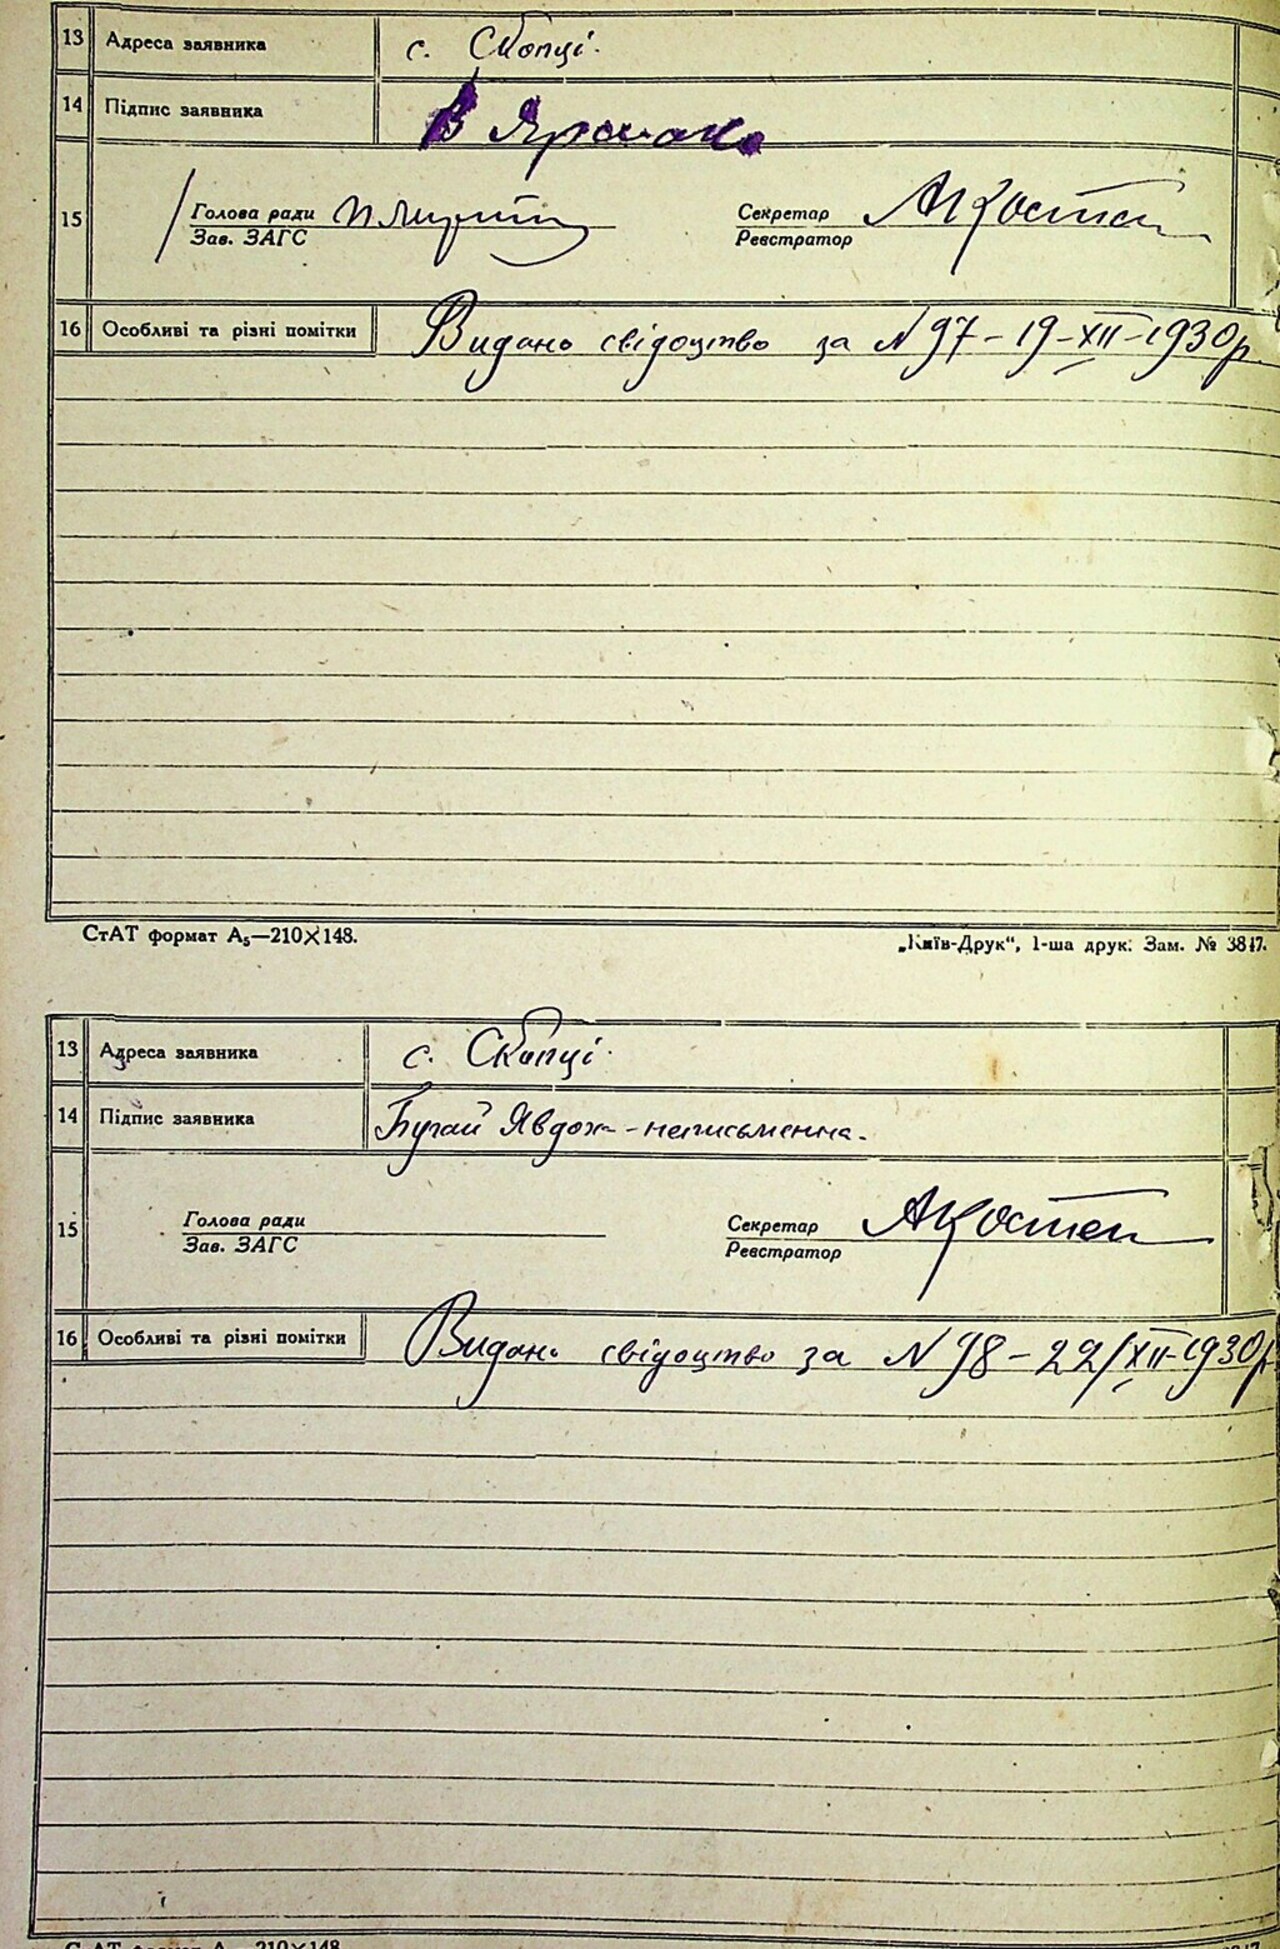 13 Адреса заявника с. Скопці.
14 Підпис заявника В
15 Голова ради Секретар АКостен
Зав. ЗАГС Реєстратор
16 Особливі та різні помітки Видано свідоцтво за N 97 - 19 - XII - 1930р
СтАТ формат А₅—210×148. „Київ-Друк“, 1-ша друк. Зам. № 3817.
13 Адреса заявника с. Скопці.
14 Підпис заявника Бугай Явдох - неписьменна.
15 Голова ради Секретар АКостен
Зав. ЗАГС Реєстратор
16 Особливі та різні помітки Видано свідоцтво за N 98 - 22/XII - 1930р
СтАТ формат А 210×148